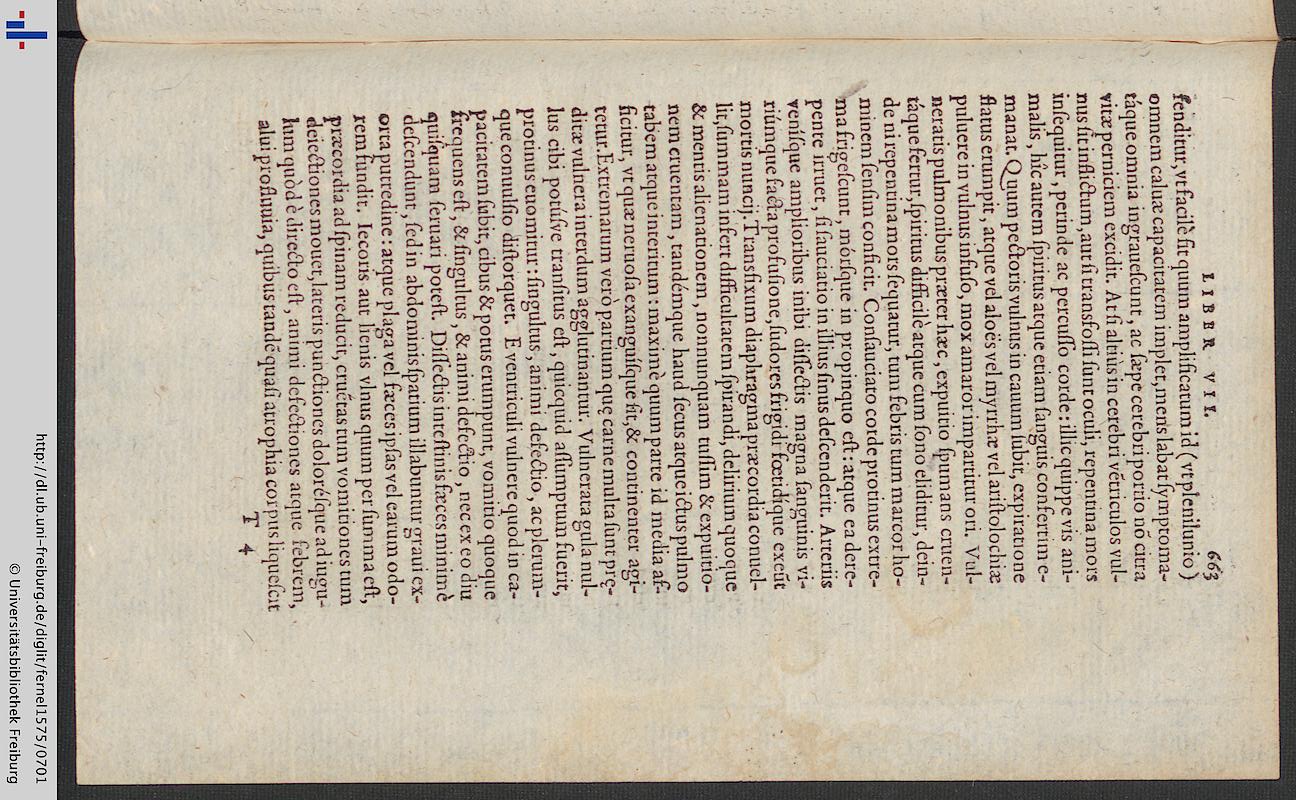 LIBER VII. 663
ſenditur, vt facilè ſit quum amplificatum id (vt plenilunio)
omnem caluæ capacitatem implet, mens labat ſymptoma-
táque omnia ingraueſcunt, ac ſæpe cerebri portio nō citra
vitæ perniciem excidit. At ſi altius in cerebri vētriculos vul-
nus ſit inflictum, aut ſi transfoſſi ſunt oculi, repentina mors
inſequitur, perinde ac percuſſo corde: illic quippe vis ani-
malis, hîc autem ſpiritus atque etiam ſanguis confertim e-
manat. Quum pectoris vulnus in cauum ſubit, expiratione
flatus erumpit, atque vel aloës vel myrrhæ vel ariſtolochiæ
puluere in vulnus infuſo, mox amaror impartitur ori. Vul-
neratis pulmonibus præter hæc, exputio ſpumans cruen-
táque fertur, ſpiritus difficilè atque cum ſono eliditur, dein-
de ni repentina mors ſequatur, tum febris tum marcor ho-
minem ſenſim conficit. Conſauciato corde protinus extre-
ma frigeſcunt, mórſque in propinquo eſt: atque ea dere-
pente irruet, ſi ſauciatio in illius ſinus deſcenderit. Arteriis
veníſque amplioribus inibi diſſectis magna ſanguinis vi-
riúmque facta profuſione, ſudores frigidi fœtidique exeūt
mortis nuncij. Transfixum diaphragma præcordia conuel-
lit, ſummam infert difficultatem ſpirandi, delirium quoque
& mentis alienationem, nonnunquam tuſſim & exputio-
nem cruentam, tandémque haud ſecus atque ictus pulmo
tabem atque interitum: maximè quum parte id media af-
ficitur, vt quæ neruoſa exanguíſque ſit, & continenter agi-
tetur. Extremarum verò partium quę carne multa ſunt prę-
ditæ vulnera interdum agglutinantur. Vulnerata gula nul-
lus cibi potúſve tranſitus eſt, quicquid aſſumptum fuerit,
protinus euomitur: ſingultus, animi defectio, ac plerum-
que conuulſio diſtorquet. E ventriculi vulnere quod in ca-
pacitatem ſubit, cibus & potus erumpunt, vomitio quoque
frequens eſt, & ſingultus, & animi defectio, nec ex eo diu
quiſquam ſeruari poteſt. Diſſectis inteſtinis fæces minimè
deſcendunt, ſed in abdominis ſpatium illabuntur graui ex-
orta putredine: atque plaga vel fæces ipſas vel earum odo-
rem fundit. Iecoris aut lienis vlnus quum per ſumma eſt,
præcordia ad ſpinam reducit, cruētas tum vomitiones tum
deiectiones mouet, lateris punctiones doloréſque ad iugu-
lum quòd è directo eſt, animi defectiones atque febrem,
alui profluuia, quibus tandē quaſi atrophia corpus liqueſcit
T 4
http://dl.ub.uni-freiburg.de/diglit/fernel1575/0701
© Universitätsbibliothek Freiburg